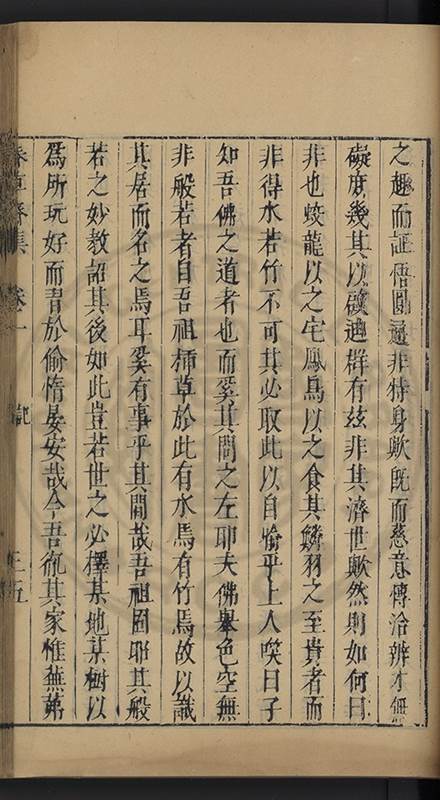 之趣而証悟圓通非特身歟既而慈意傳洽辨才無
礙庶幾其以啟迪群有茲非其濟世歟然則如何曰
非也蛟龍以之宅鳳鳥以之食其鱗羽之至貴者而
非得水若竹不可其必取此以自愉乎上人唉曰子
知吾佛之道者也而奚其問之左耶夫佛舉色空無
非般若者自吾祖插草於此有水焉有竹焉故以識
其居而名之焉耳奚有事乎其間哉吾祖固耶其般
若之妙教詔其後如此豈若世之必擇某地某樹以
爲所玩好而肯於偷惰晏安哉今吾衹其家惟蕪第
集 卷一 記 三五